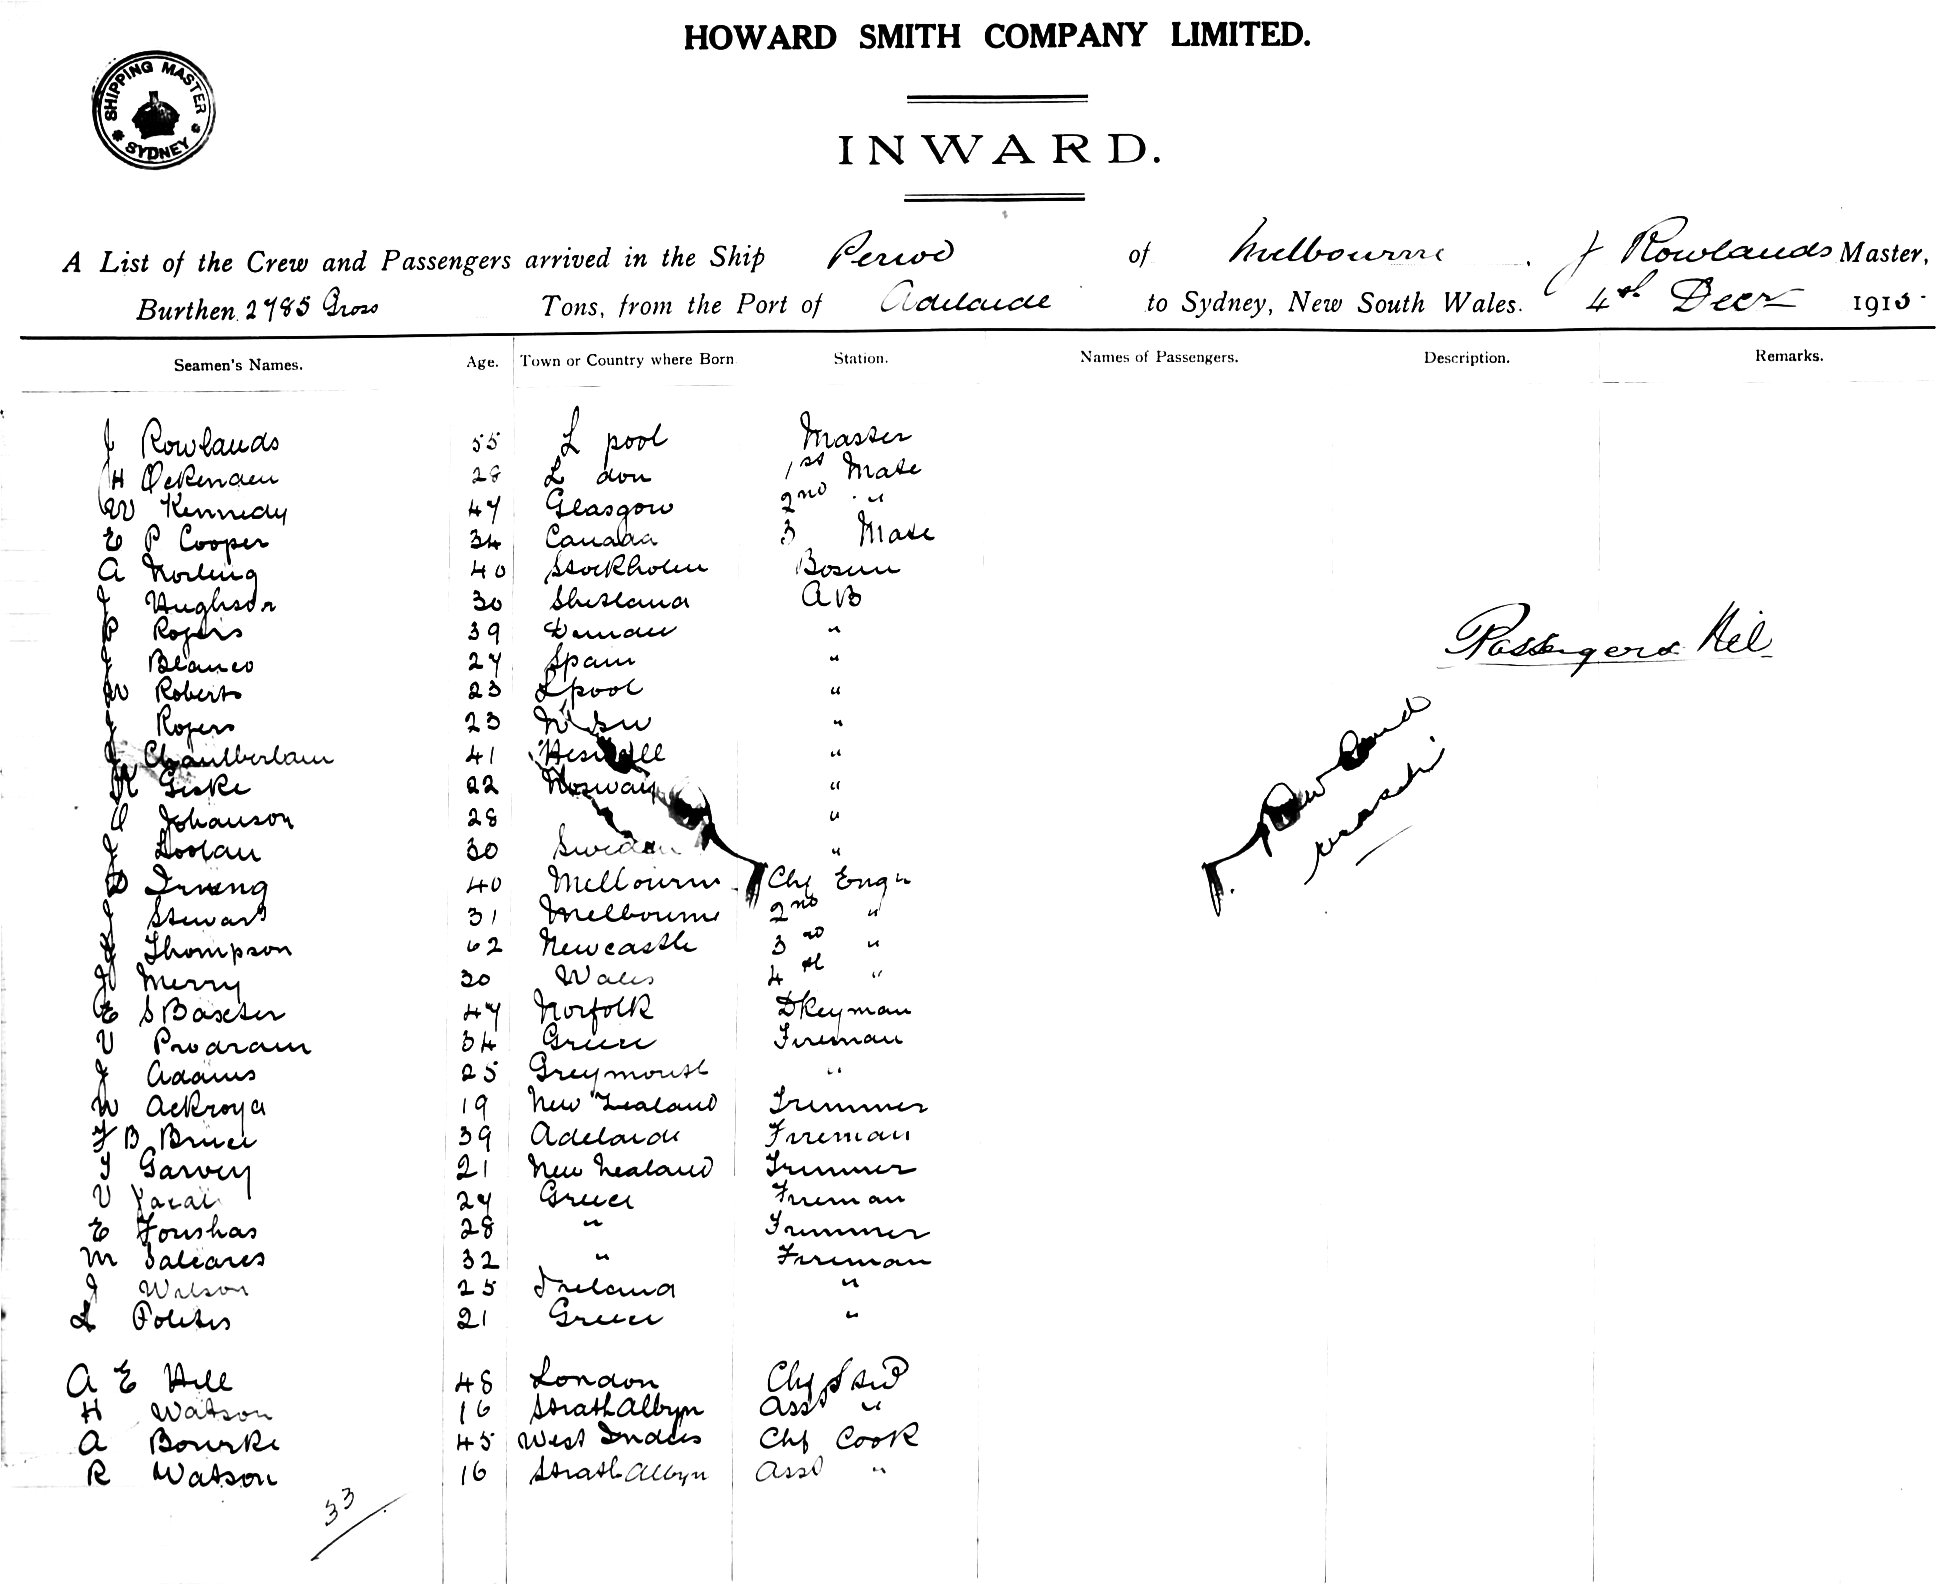 HOWARD SMITH COMPANY LIMITED.
SHIPPING MASTER SYDNEY
INWARD.
A List of the Crew and Passengers arrived in the Ship of Melbourne J Rowlands Master,
Burthen 2785 Gross Tons, from the Port of Adelaide to Sydney, New South Wales. 4th Decr 1915
Seamen's Names. Age. Town or Country where Born Station. Names of Passengers. Description. Remarks.
J Rowlands 55 L pool Master
H Ockenden 28 L don 1st Mate
W Kennedy 47 Glasgow 2nd "
E P Cooper 34 Canada 3 Mate
A Norling 40 Stockholm Bosun
J Hughson 30 Shetland AB
P Rogers 39 "
J Blanco 27 Spain "
Passengers Nil
W Roberts 23 Lpool "
J Rogers 23 "
J Chamberlain 41 "
Giske 22 Norway "
Johanson 28 "
J 30 Sweden "
D Irving 40 Melbourne Chf Engr
J Stewart 31 Melbourne 2nd "
J Thompson 62 Newcastle 3rd "
J Merry 30 Wales 4th "
E S Baxter 47 Norfolk Dkeyman
V 34 Greece Fireman
J Adams 25 Greymouth "
W Ackroyd 19 New Zealand Trimmer
F B Bruce 39 Adelaide Fireman
T Garvey 21 New Zealand Trimmer
V 27 Greece Fireman
E Foushas 28 " Trimmer
M Saleares 32 " Fireman
J Wilson 25 Ireland "
L Politis 21 Greece "
A E Hill 48 London Chf Std
H Watson 16 StrathAlbyn Asst "
A Bourke 45 West Indies Chf Cook
R Watson 16 StrathAlbyn Asst "
33